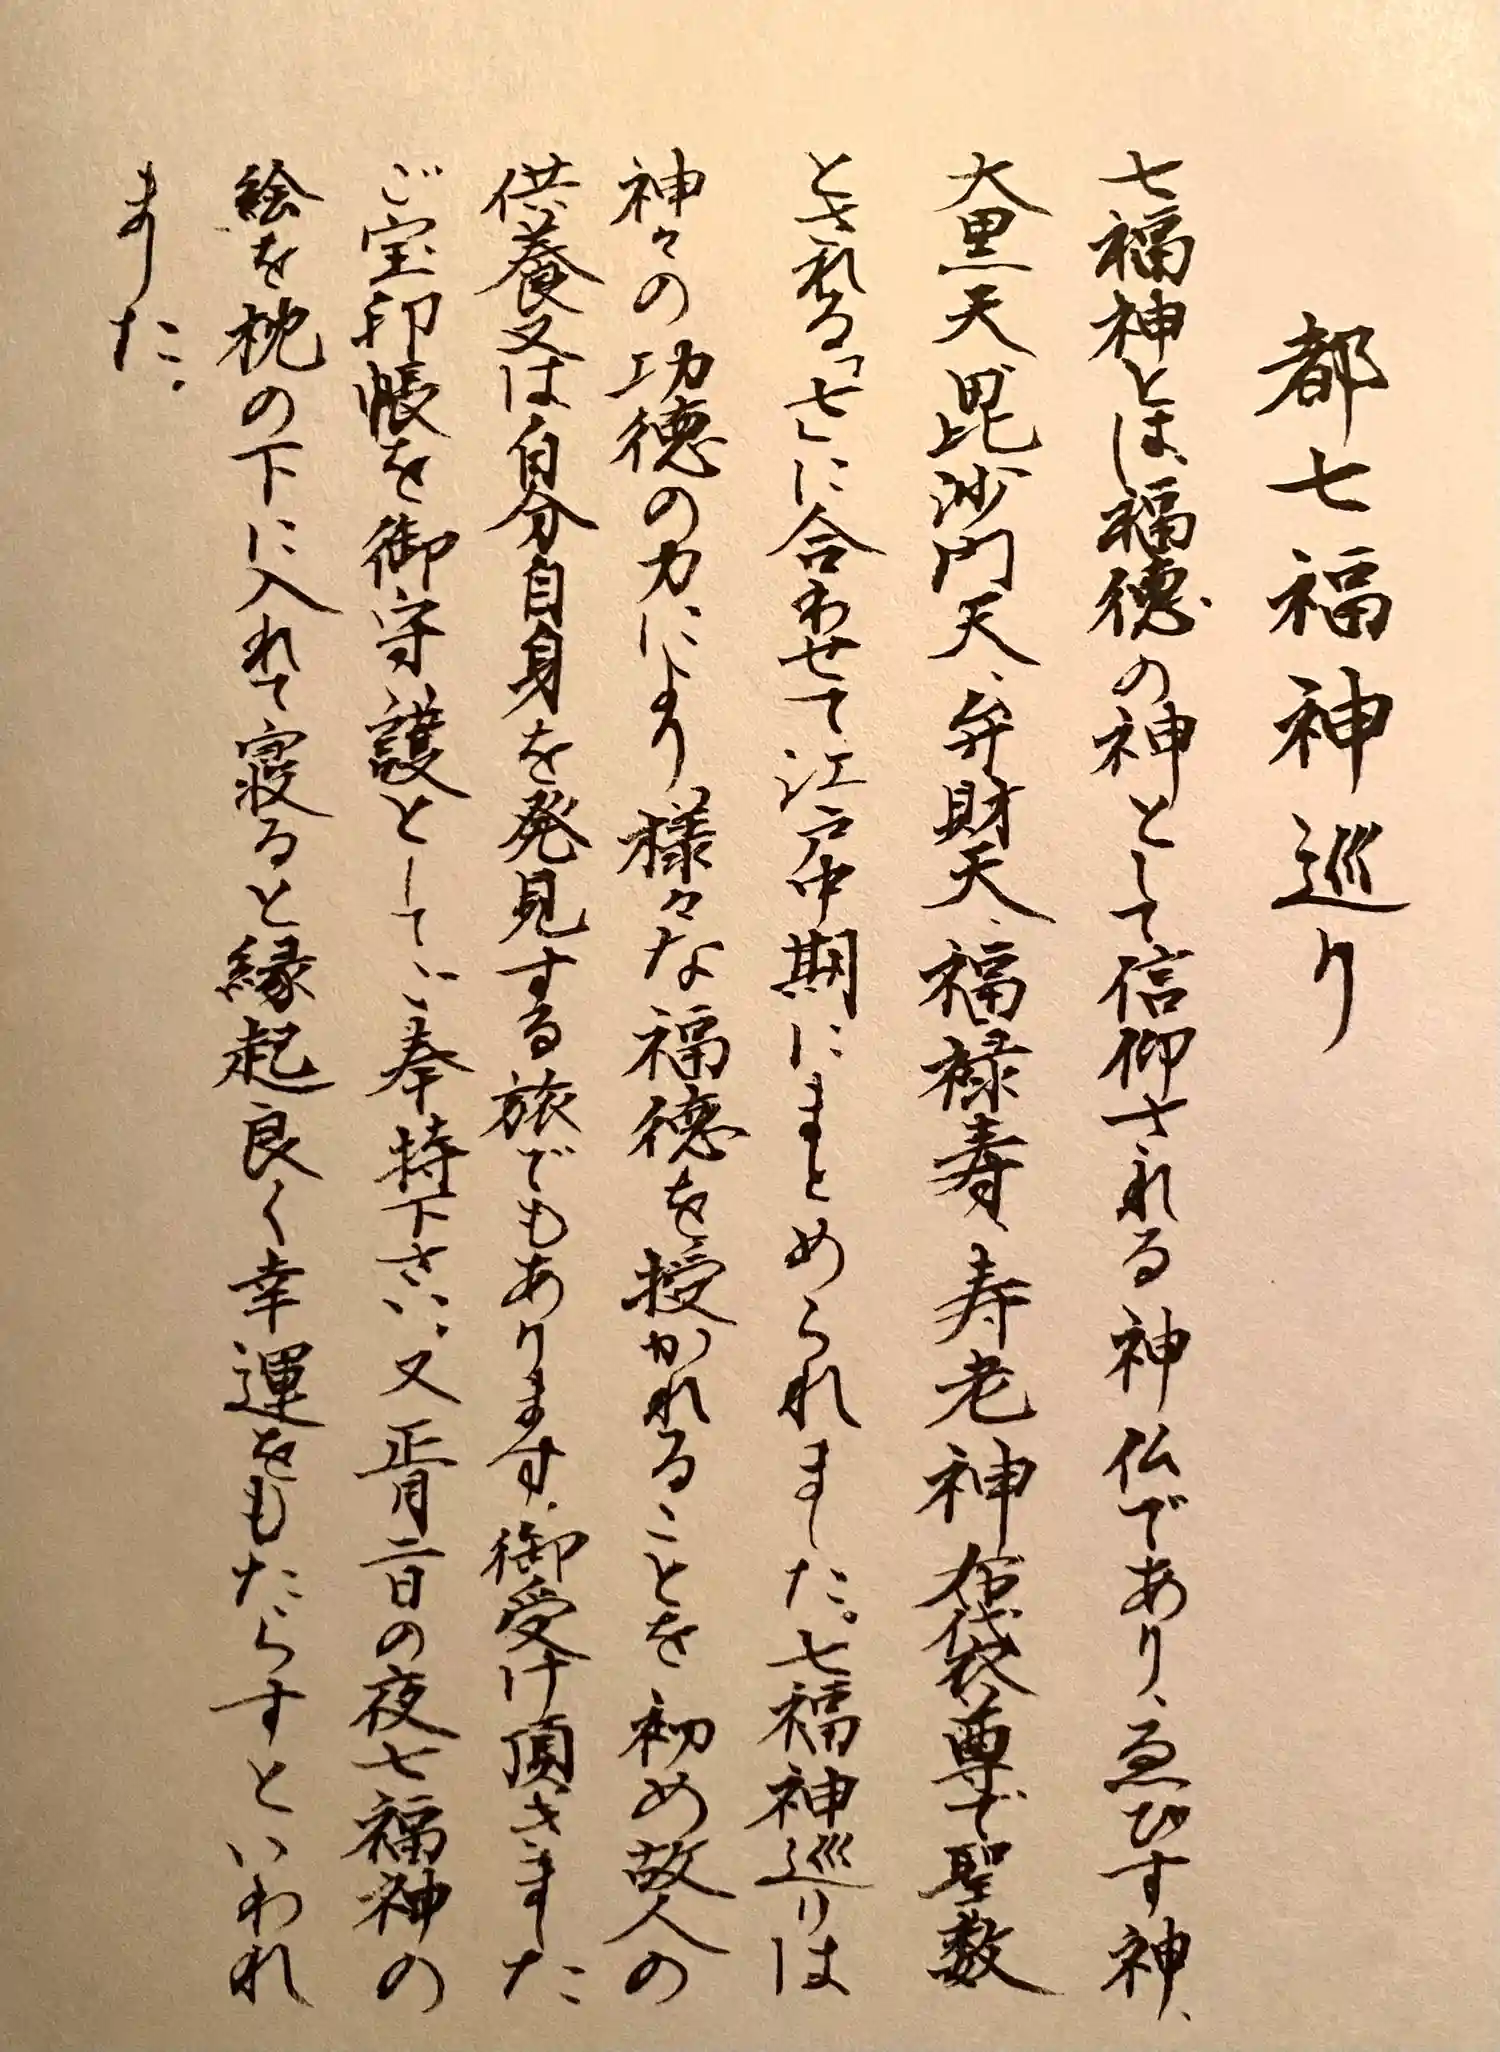 都七福神巡り
七福神とは、福徳の神として信仰される神仏であり、ゑびす神、
大黒天、毘沙門天、弁財天、福禄寿、寿老神、布袋尊で聖数
とされる「七」に合わせて江戸中期にまとめられました。七福神巡りは
神々の功徳の力により、様々な福徳を授かれることを初め故人の
供養又は自分自身を発見する旅でもあります。御受け頂きました
ご宝印帳を御守護としてご奉持下さい。又正月二日の夜七福神の
絵を枕の下に入れて寝ると縁起良く幸運をもたらすといわれ
ました。